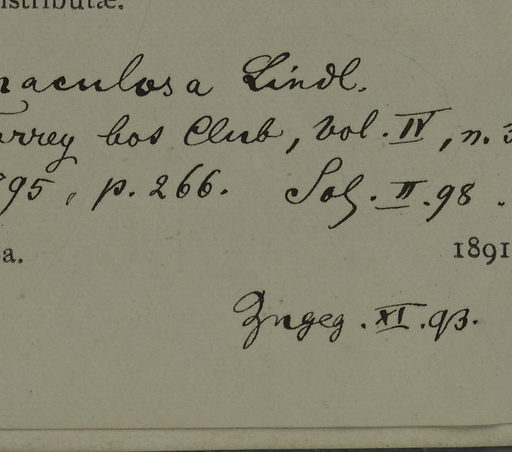 istributæ.
maculosa Lindl.
orrey bot Club, vol. IV, n. 3
95, p. 266. Sol. II. 98.
a. 1891
Ingeg. XI. 93.